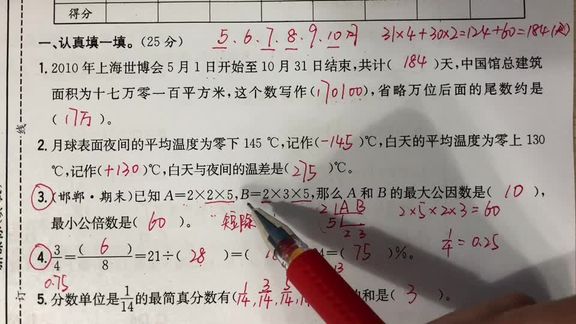 得分
一、认真填一填。(25分) 5.6.7.8.9.10月 31×4+30×2=124+60=184(天)
1. 2010年上海世博会5月1日开始至10月31日结束,共计(184)天,中国馆总建筑
面积为十七万零一百平方米,这个数写作(170100),省略万位后面的尾数约是
(17万)。
2. 月球表面夜间的平均温度为零下145℃,记作(-145)℃,白天的平均温度为零上130
℃,记作(+130)℃,白天与夜间的温差是(275)℃。
3. (邯郸·期末)已知A=2×2×5,B=2×3×5,那么A和B的最大公因数是(10),
最小公倍数是(60)。 短除 2 A B 2×5×2×3=60
5 2 3
4. 3/4=(6)/8=21÷(28)=( )=(75)%。 1/4=0.25
0.75
5. 分数单位是1/14的最简真分数有(1/14, 3/14, 5/14, 和是(3)。
线
订